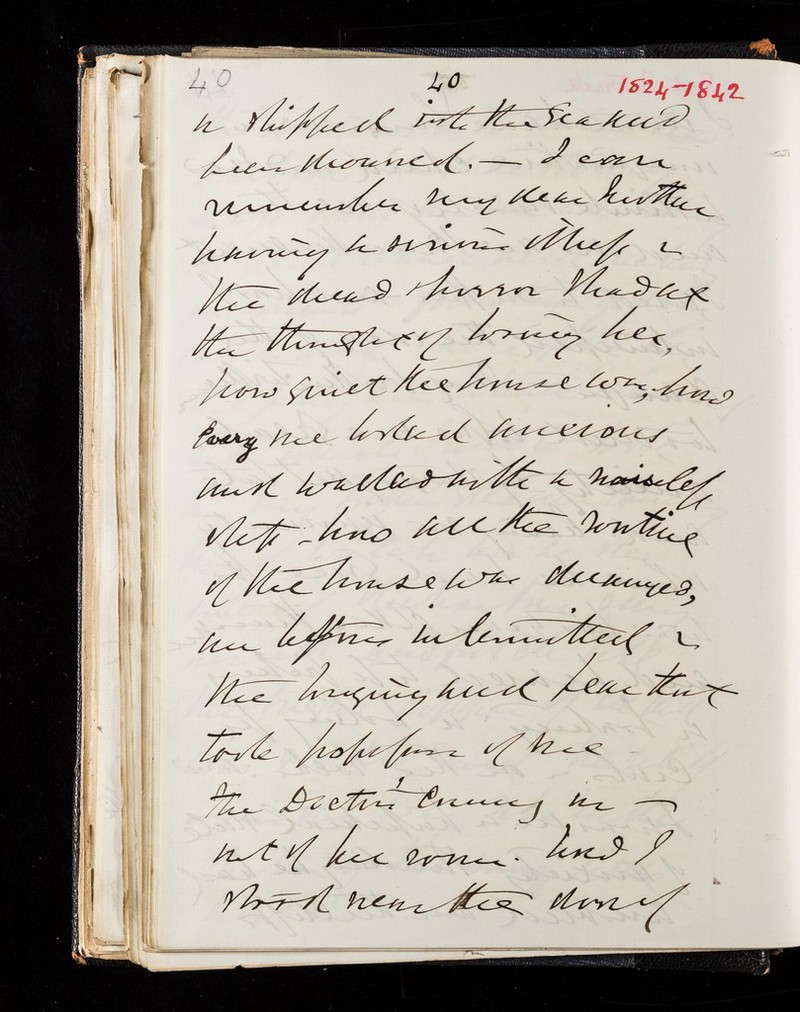 40 40 1824-1842
or slipped into the Sea and
been drowned. — I can
remember my dear Mother
having a serious illness &
the dread & horror I had at
the thought of losing her,
how quiet the house was, how
Every one looked anxious
and walked with a noiseless
step - how all the routine
of the house was deranged,
our lessons intermitted &
the longing and fear that
took possession of me
the Doctor's coming in —
out of her room. And I
stood near the door of